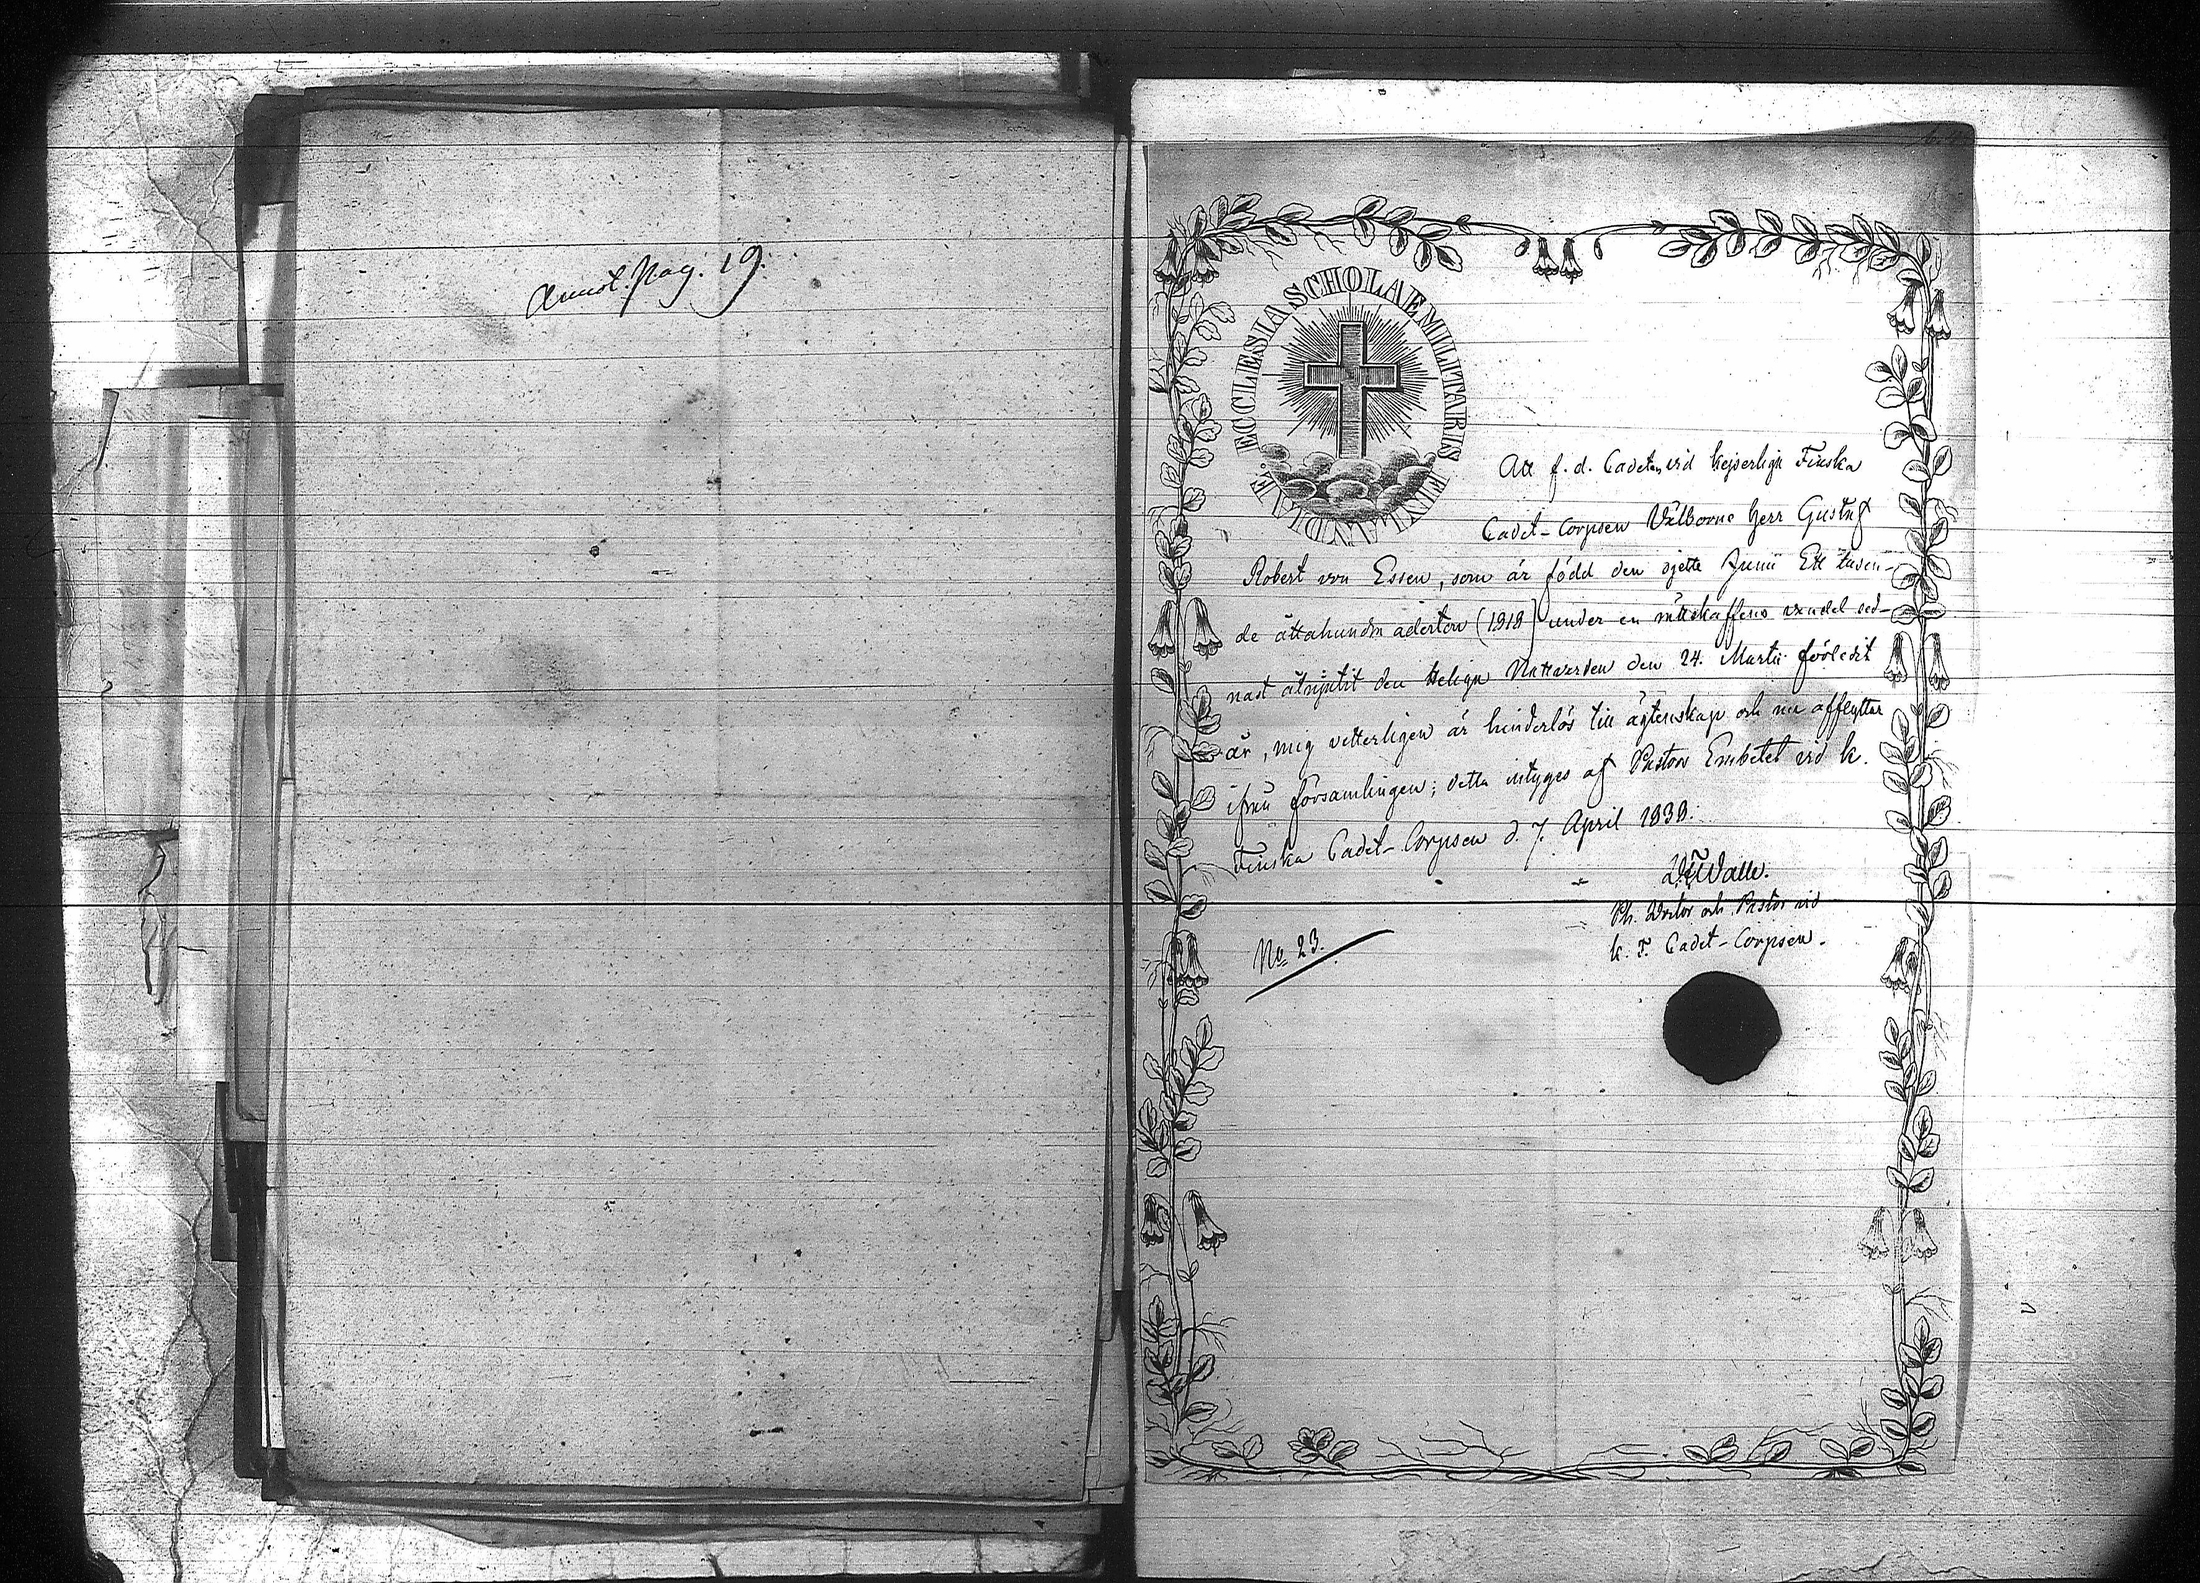 Annot. Pag. 19.
ECCLESIA SCHOLAE MILITARIS FINLANDIAE.
Att f. d. Cadeten vid Kejserliga Finska
Cadet-Corpsen Välborne Herr Gustaf
Robert von Essen, som är född den sjette Junii Ett tusen-
de åttahundra aderton (1818) under en vandel sed-
nast åtnjutit den Heliga Nattvarden den 24. Martii förledit
år, mig vetterligen är hinderlös till ägtenskap och nu afflyttar
ifrån församlingen; detta intyges af Pastors Embetet vid K.
Finska Cadet-Corpsen d. 7. April 1838.
Walle.
Ph. Doctor och Pastor vid
K. F. Cadet-Corpsen.
No 23.